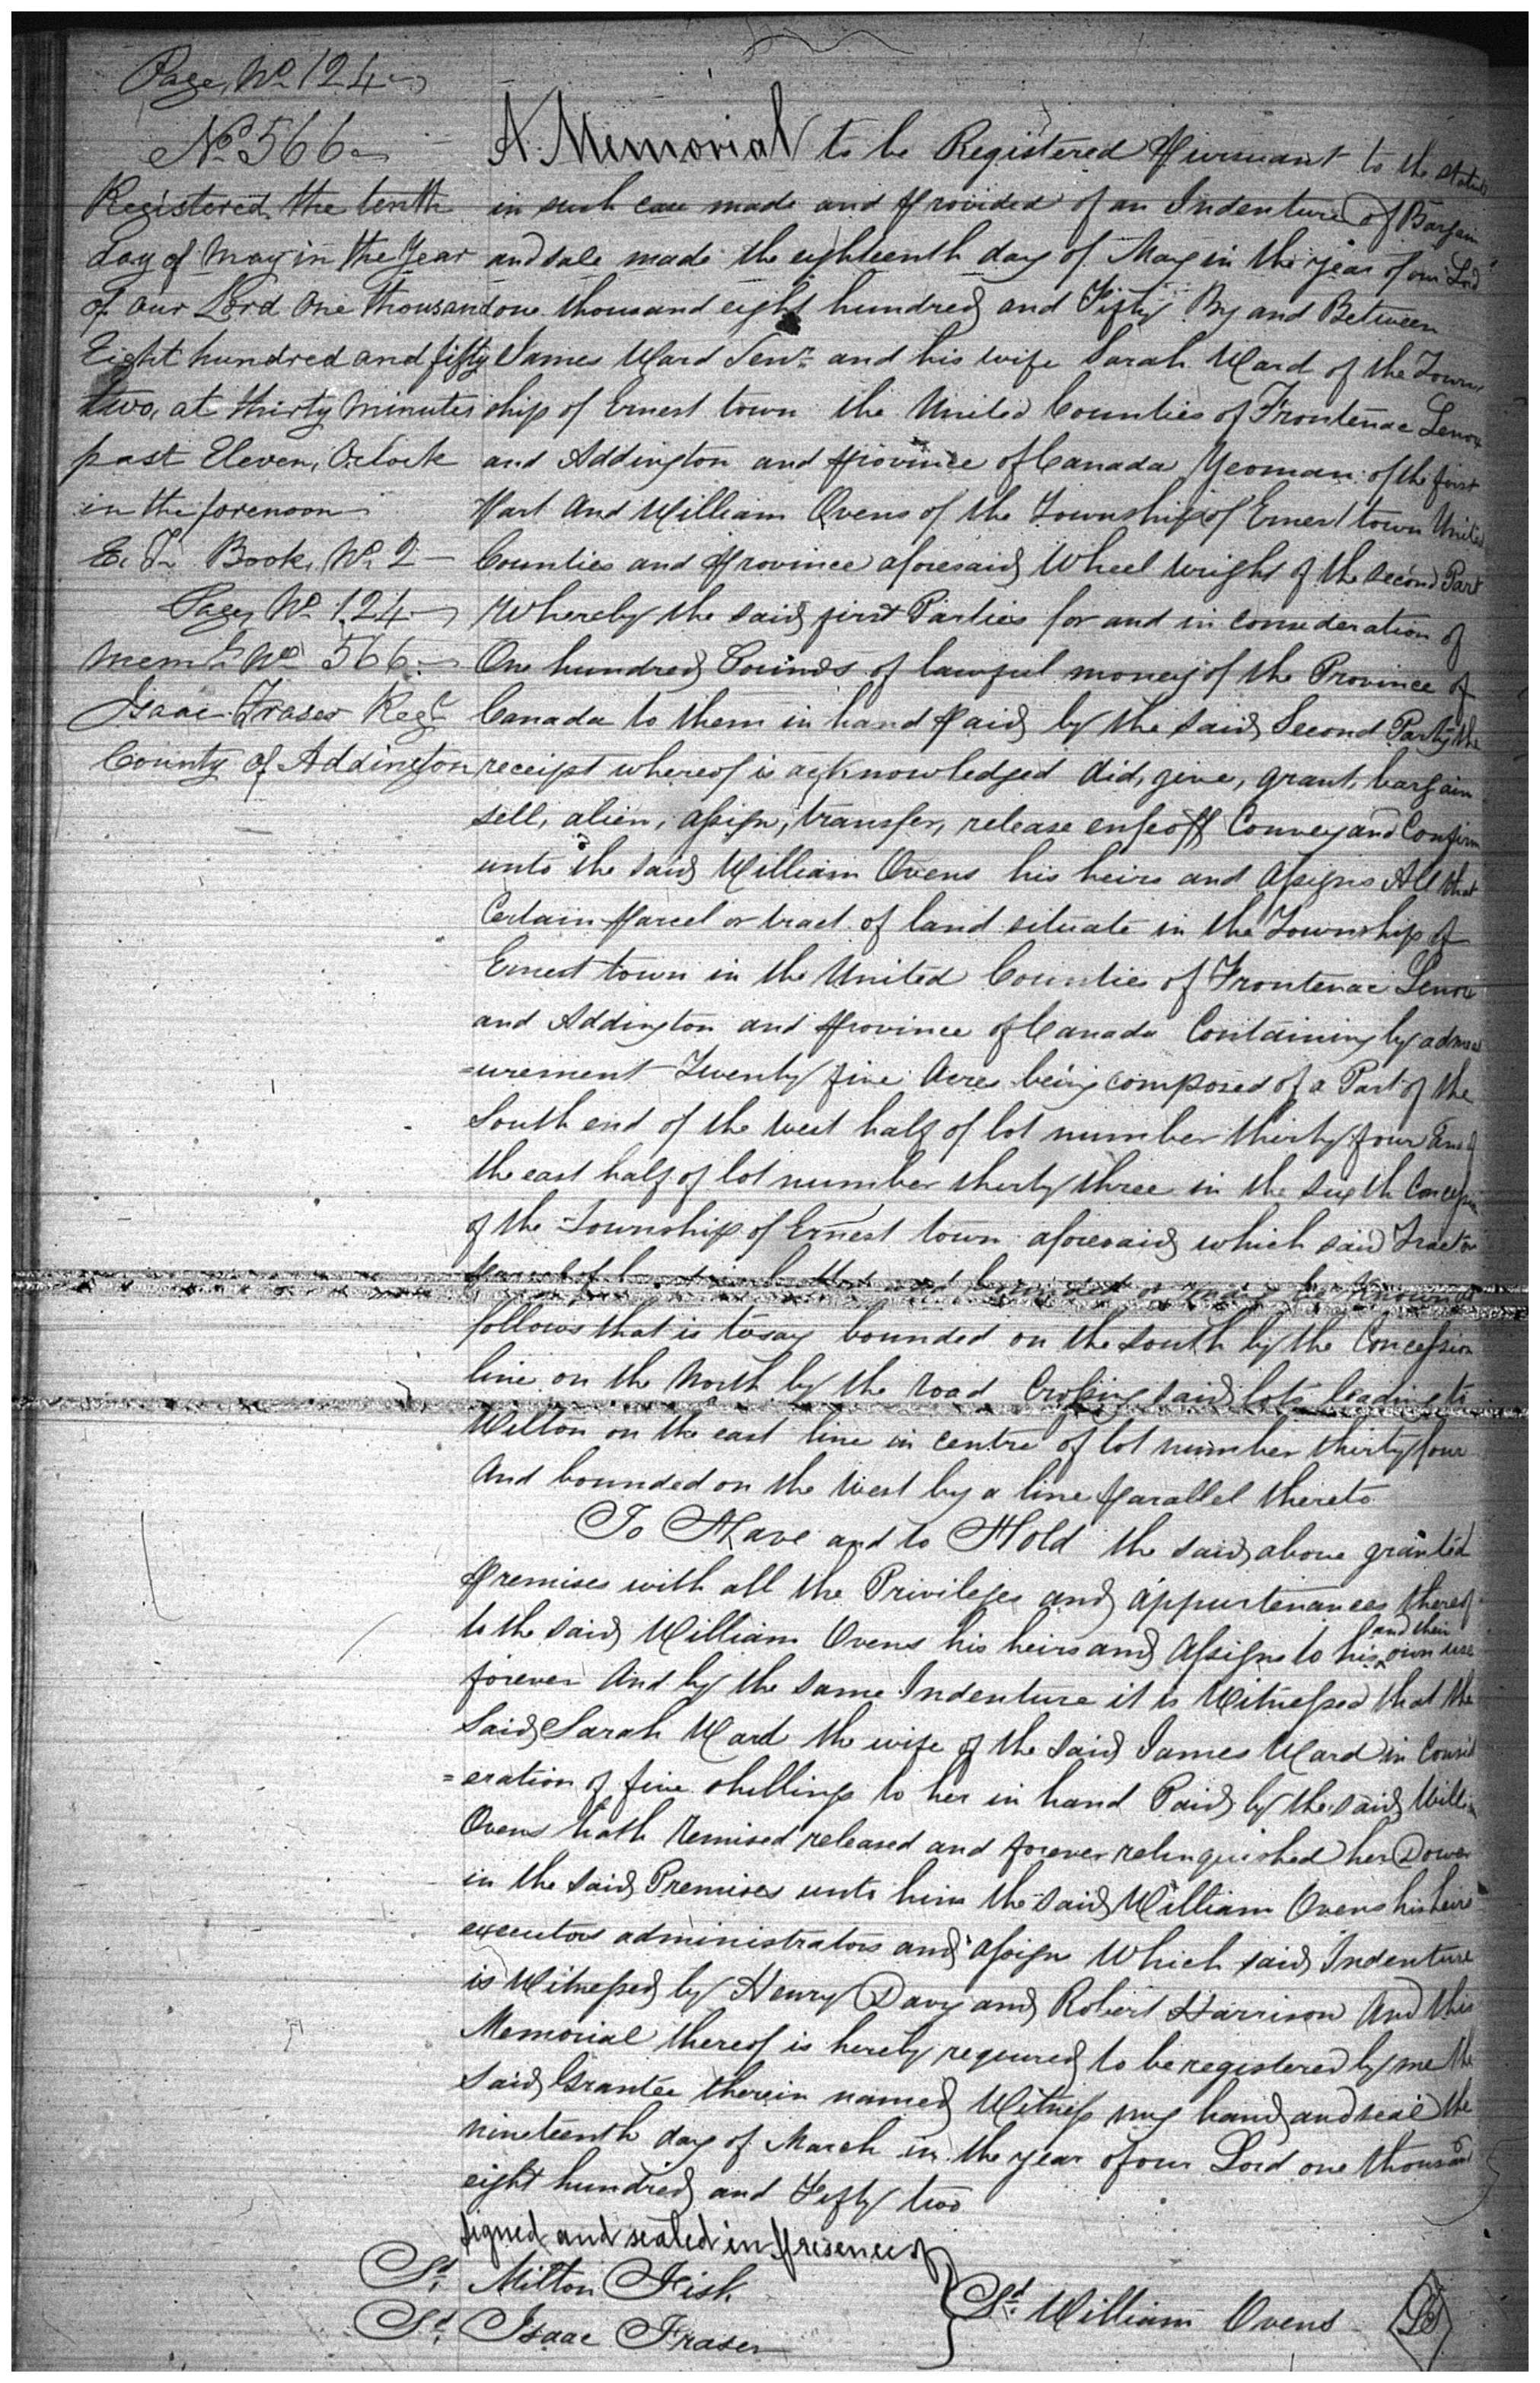 Page, No 124
No 566
Registered, the tenth
day of May in the Year
of our Lord One thousand
Eight hundred and fifty
two, at thirty minutes
past Eleven, Oclock
in the forenoon
E. T. Book, No. 2
Page, No 124
Meml. No 566
Isaac Fraser Regr
County of Addington
A Memorial to be Registered Pursuant to the statute
in such case made and Provided of an Indenture of Bargain
and sale made the eighteenth day of May in the year of our Lord
one thousand eight hundred and Fifty By and Between
James Ward Senr. and his wife Sarah Ward of the Town
ship of Ernest town the United Counties of Frontenac Lenox
and Addington and Province of Canada Yeoman of the first
Part And William Ovens of the Township of Ernest town United
Counties and Province aforesaid Wheel wright of the second Part
Whereby the said first Parties for and in consideration of
One hundred Pounds of lawful money of the Province of
Canada to them in hand Paid by the said Second Party the
receipt whereof is acknowledged did, give, grant, bargain
sell, alien, assign, transfer, release enfeoff Convey and Confirm
unto the said William Ovens his heirs and Assigns All that
Certain Parcel or tract of land situate in the Township of
Ernest town in the United Counties of Frontenac Lenox
and Addington and Province of Canada Containing by admeas
=urement Twenty five Acres being composed of a Part of the
South end of the west half of lot number thirty four and of
the east half of lot number thirty three in the sixth Concession
of the Township of Ernest town aforesaid which said Tract or
parcel of land is butted and bounded or may be known as
follows that is to say bounded on the south by the Concession
line on the North by the road Crossing said lots leading to
Wilton on the east line in centre of lot number thirty four
And bounded on the West by a line Parallel thereto
To Have and to Hold the said above granted
Premises with all the Privileges and appurtenances thereof
to the said William Ovens his heirs and Assigns to his and their own use
forever And by the same Indenture it is Witnessed that the
Said Sarah Ward the wife of the said James Ward in Consid
=eration of five shillings to her in hand Paid by the said William
Ovens hath Remised released and forever relinquished her Dower
in the said Premises unto him the said William Ovens his heirs
executors administrators and assigns Which said Indenture
is Witnessed by Henry Davy and Robert Harrison And this
Memorial thereof is hereby required to be registered by me the
said Grantee therein named Witness my hand and seal the
nineteenth day of March in the year of our Lord one thousand
eight hundred and Fifty two
signed and sealed in Presence of
Sd. Milton Fisk
Sd. Isaac Fraser
Sd. William Ovens LS